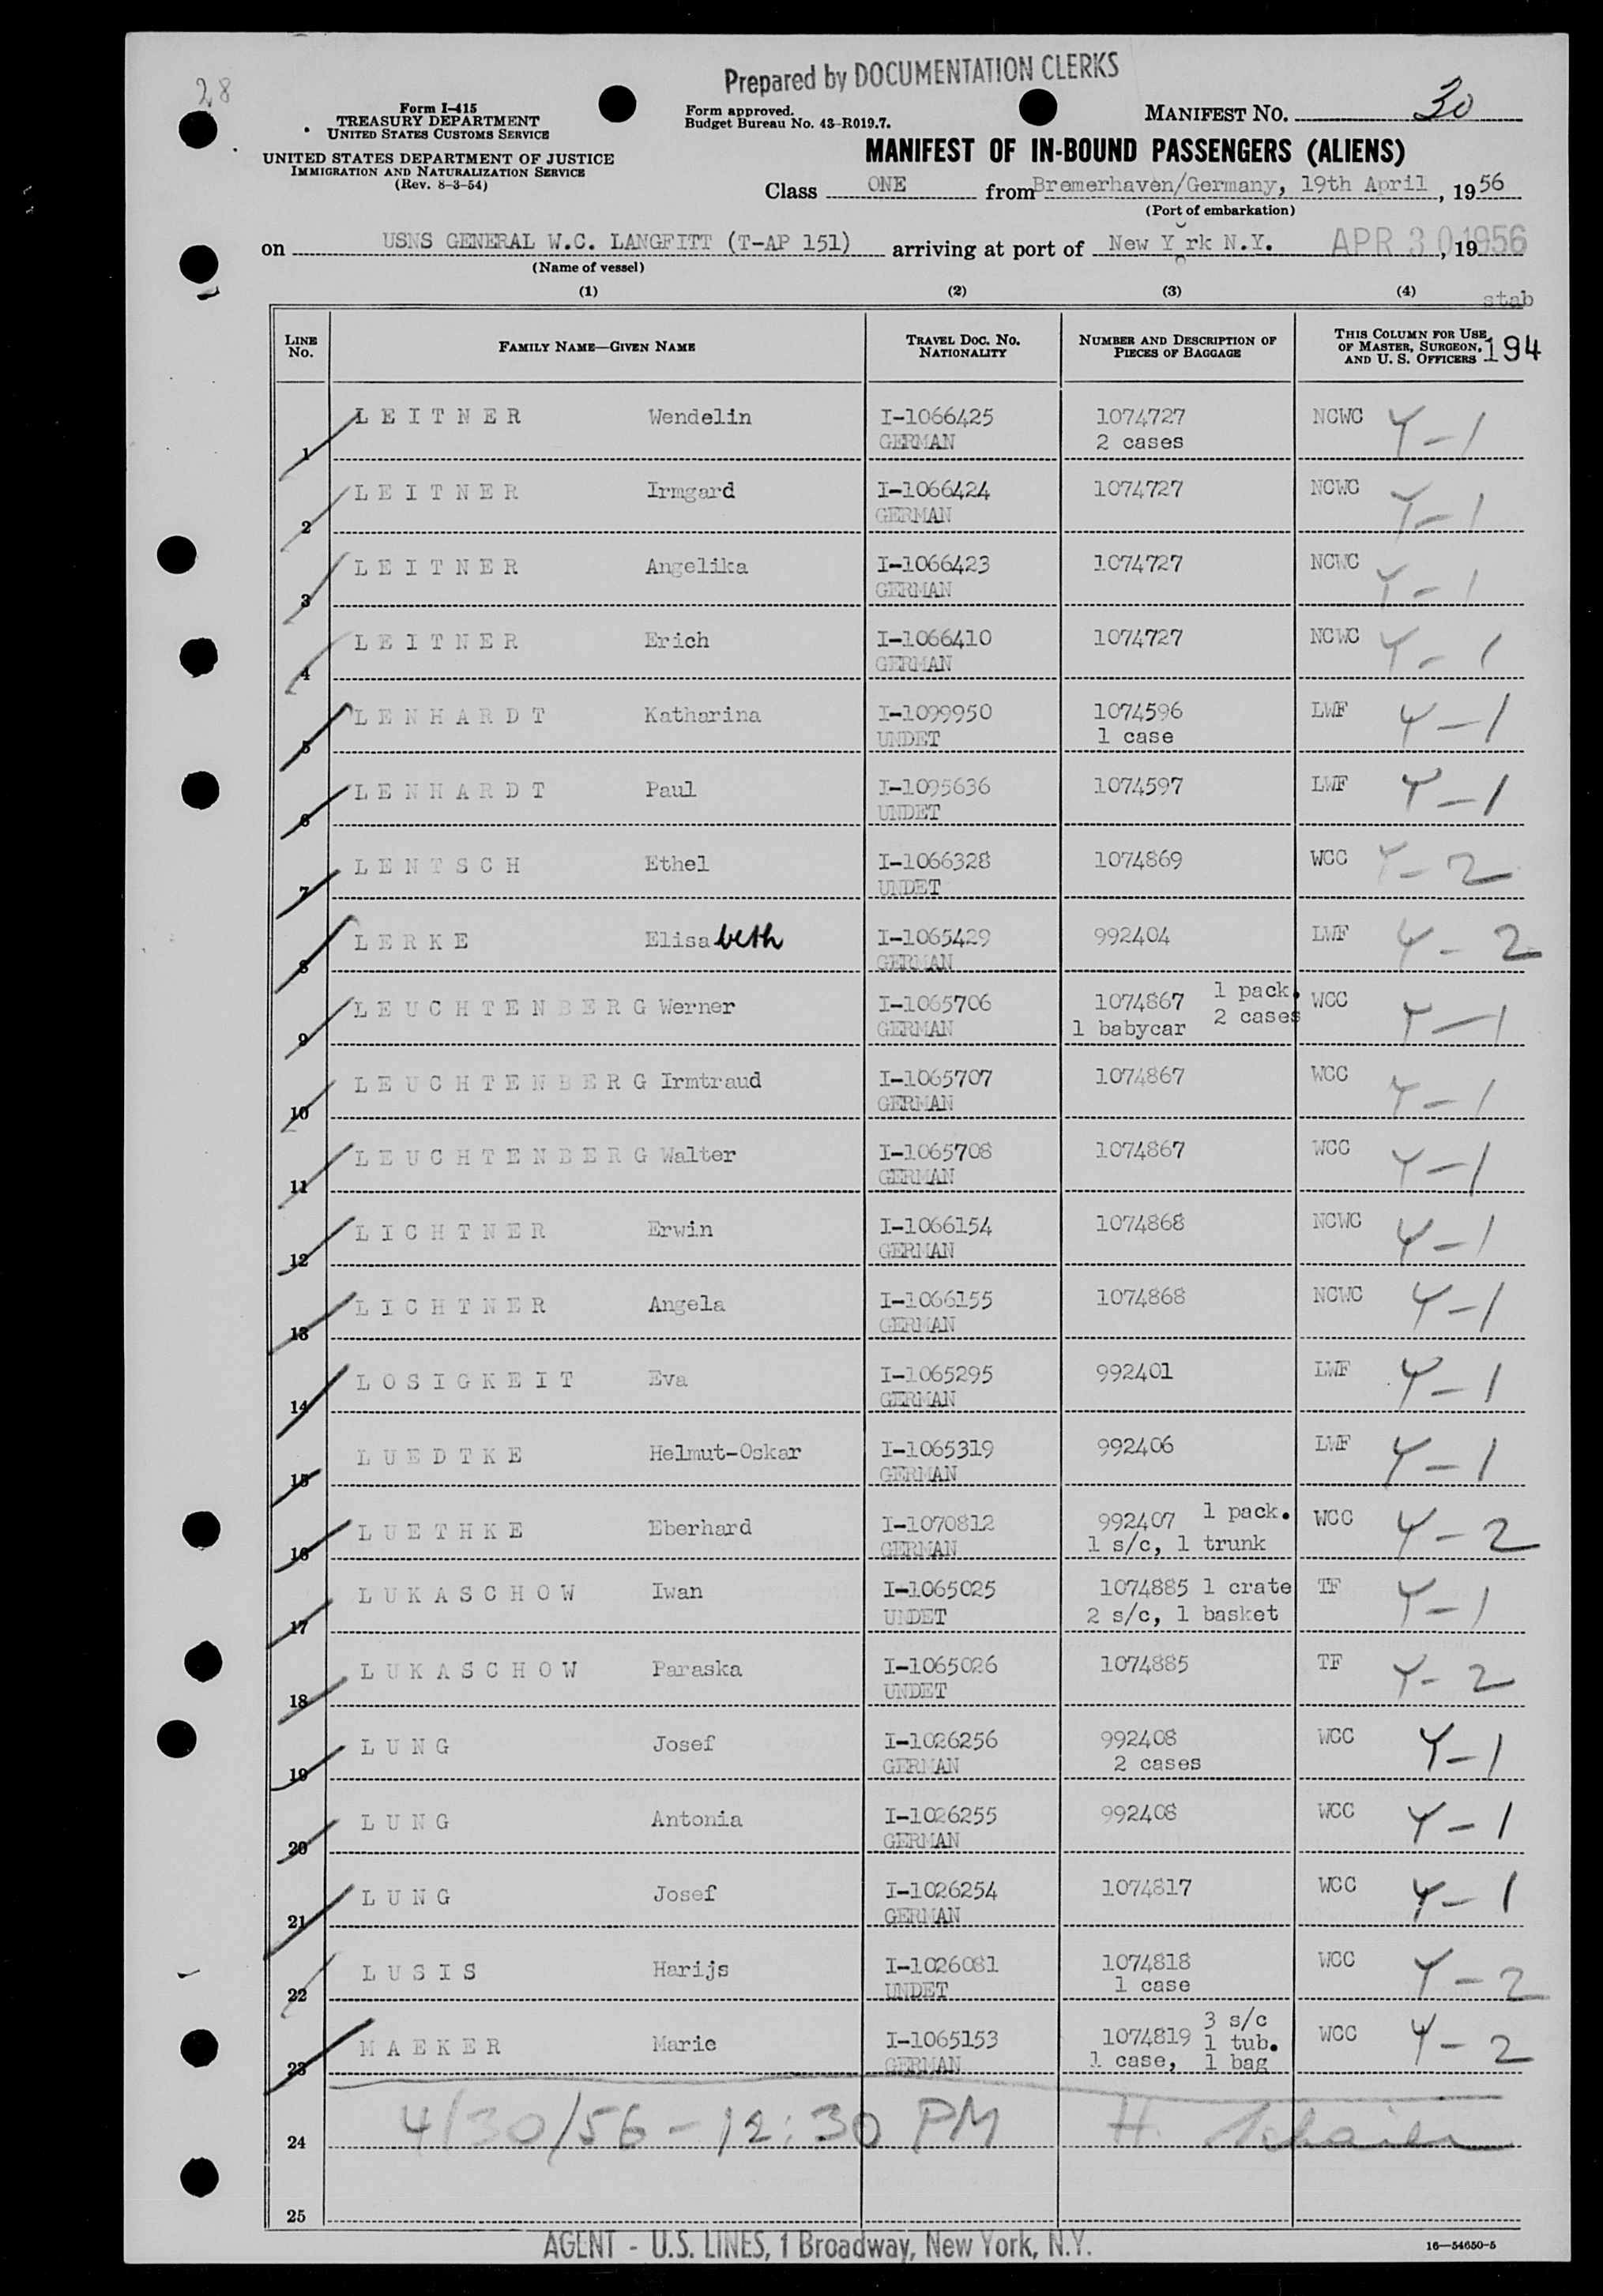 28
Prepared by DOCUMENTATION CLERKS
Form I-415
TREASURY DEPARTMENT
UNITED STATES CUSTOMS SERVICE
UNITED STATES DEPARTMENT OF JUSTICE
IMMIGRATION AND NATURALIZATION SERVICE
(Rev. 8-3-54)
Form approved.
Budget Bureau No. 43-R019.7.
MANIFEST NO. 30
MANIFEST OF IN-BOUND PASSENGERS (ALIENS)
Class ONE from Bremerhaven/Germany, 19th April, 1956
(Port of embarkation)
on USNS GENERAL W.C. LANGFITT (T-AP 151) arriving at port of New York N.Y. APR 30 1956, 19
(Name of vessel)
(1) (2) (3) (4) stab
LINE No. FAMILY NAME—GIVEN NAME TRAVEL DOC. NO. NATIONALITY NUMBER AND DESCRIPTION OF PIECES OF BAGGAGE THIS COLUMN FOR USE OF MASTER, SURGEON, AND U. S. OFFICERS 194
1 LEITNER Wendelin I-1066425 1074727 NCWC Y-1
GERMAN 2 cases
2 LEITNER Irmgard I-1066424 1074727 NCWC Y-1
GERMAN
3 LEITNER Angelika I-1066423 1074727 NCWC Y-1
GERMAN
4 LEITNER Erich I-1066410 1074727 NCWC Y-1
GERMAN
5 LENHARDT Katharina I-1099950 1074596 LWF Y-1
UNDET 1 case
6 LENHARDT Paul I-1095636 1074597 LWF Y-1
UNDET
7 LENTSCH Ethel I-1066328 1074869 WCC Y-2
UNDET
8 LERKE Elisabeth I-1065429 992404 LWF Y-2
GERMAN
9 LEUCHTENBERG Werner I-1065706 1074867 1 pack. WCC Y-1
GERMAN 1 babycar 2 cases
10 LEUCHTENBERG Irmtraud I-1065707 1074867 WCC Y-1
GERMAN
11 LEUCHTENBERG Walter I-1065708 1074867 WCC Y-1
GERMAN
12 LICHTNER Erwin I-1066154 1074868 NCWC Y-1
GERMAN
13 LICHTNER Angela I-1066155 1074868 NCWC Y-1
GERMAN
14 LOSIGKEIT Eva I-1065295 992401 LWF Y-1
GERMAN
15 LUEDTKE Helmut-Oskar I-1065319 992406 LWF Y-1
GERMAN
16 LUETHKE Eberhard I-1070812 992407 1 pack. WCC Y-2
GERMAN 1 s/c, 1 trunk
17 LUKASCHOW Iwan I-1065025 1074885 1 crate TF Y-1
UNDET 2 s/c, 1 basket
18 LUKASCHOW Paraska I-1065026 1074885 TF Y-2
UNDET
19 LUNG Josef I-1026256 992408 WCC Y-1
GERMAN 2 cases
20 LUNG Antonia I-1026255 992408 WCC Y-1
GERMAN
21 LUNG Josef I-1026254 1074817 WCC Y-1
GERMAN
22 LUSIS Harijs I-1026081 1074818 WCC Y-2
UNDET 1 case
23 MAEKER Marie I-1065153 1074819 3 s/c 1 tub. WCC Y-2
GERMAN 1 case, 1 bag
24 4/30/56 - 12:30 PM H.
25
AGENT - U.S. LINES, 1 Broadway, New York, N.Y.
16—54650-5